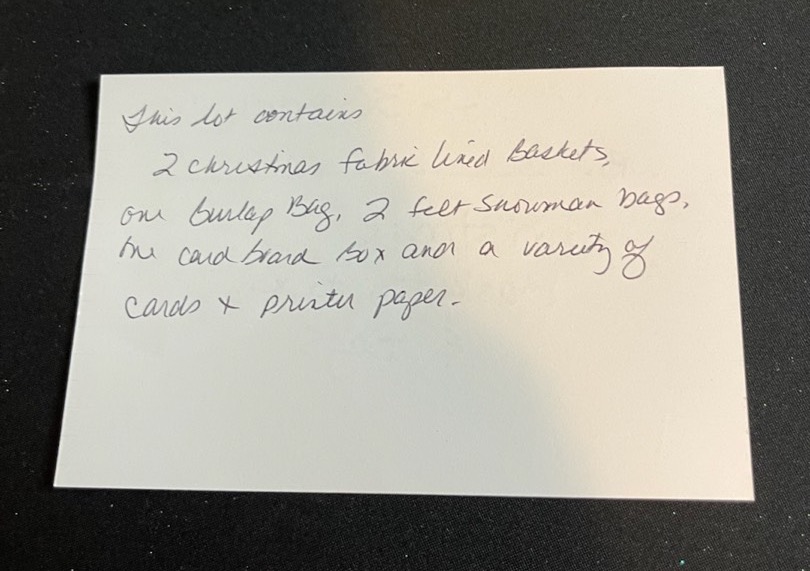 This lot contains
2 christmas fabric lined Baskets,
one burlap Bag, 2 felt Snowman bags,
one card board box and a variety of
cards + printer paper.